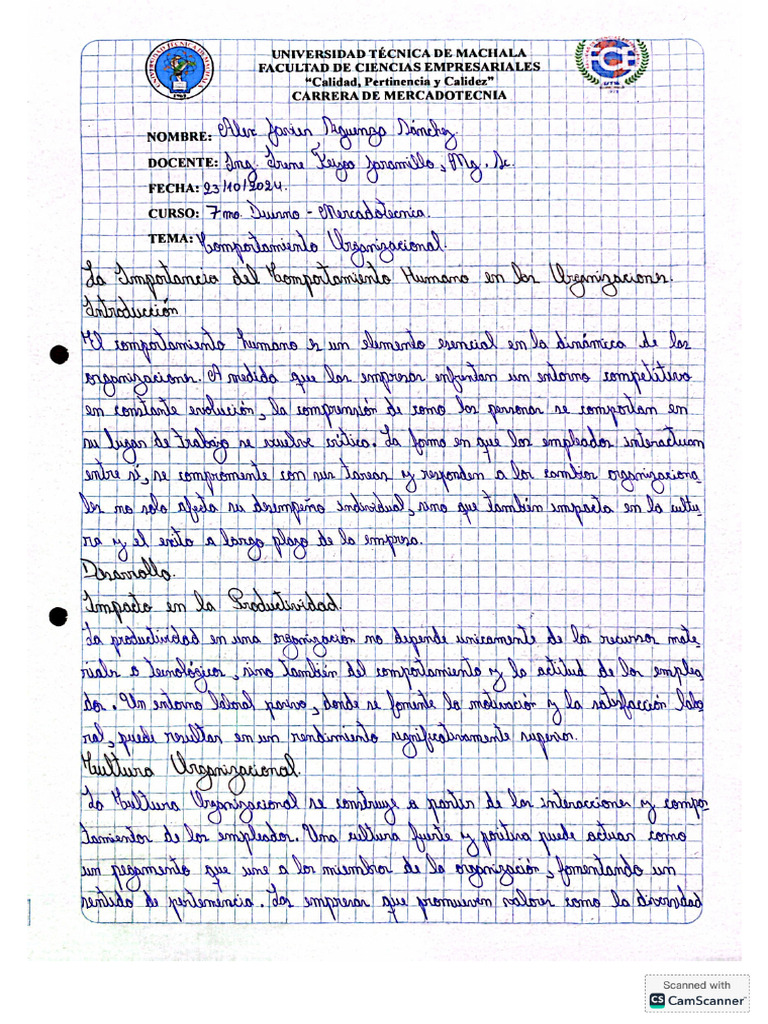 UNIVERSIDAD TÉCNICA DE MACHALA
FACULTAD DE CIENCIAS EMPRESARIALES
“Calidad, Pertinencia y Calidez”
CARRERA DE MERCADOTECNIA
NOMBRE: Alex Javier Sánchez.
DOCENTE: Ing. Irene Jaramillo, Mg. Sc.
FECHA: 23/10/2024.
CURSO: 7mo. Diurno - Mercadotecnia.
TEMA: Comportamiento Organizacional.
La Importancia del Comportamiento Humano en las Organizaciones.
Introducción
El comportamiento humano es un elemento esencial en la dinámica de las
organizaciones. A medida que las empresas enfrentan un entorno competitivo
en constante evolución, la comprensión de como las personas se comportan en
su lugar de trabajo se vuelve crítica. La forma en que los empleados interactuan
entre sí, se compromente con sus tareas y responden a los cambios organizaciona-
les no solo afecta su desempeño individual, sino que también impacta en la cultu-
ra y el exito a largo plazo de la empresa.
Desarrollo.
Impacto en la Productividad.
La productividad en una organización no depende unicamente de los recursos mate-
riales o tecnológicos, sino también del comportamiento y la actitud de los emplea
dos. Un entorno laboral, donde se fomente la motivación y la satisfacción labo
ral, puede resultar en un rendimiento significativamente superior.
Cultura Organizacional.
La Cultura Organizacional se construye a partir de las interacciones y compor
tamientos de los empleados. Una cultura fuerte y positiva puede actuar como
un pegamento que une a los miembros de la organización, fomentando un
sentido de pertenencia. Las empresas que promueven valores como la diversidad
CIENCIAS EMPRESARIALES
Scanned with
CS CamScanner